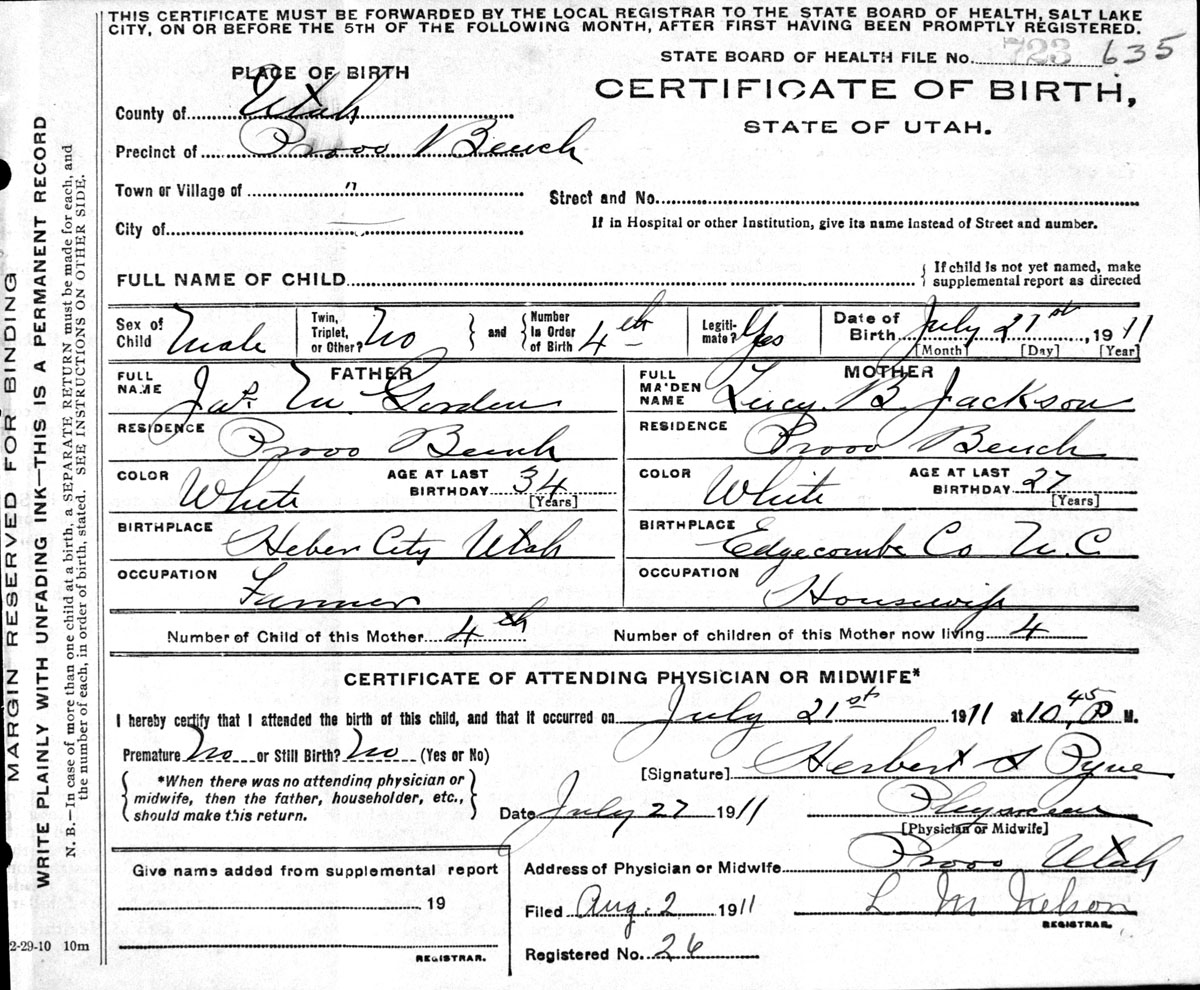 THIS CERTIFICATE MUST BE FORWARDED BY THE LOCAL REGISTRAR TO THE STATE BOARD OF HEALTH, SALT LAKE
CITY, ON OR BEFORE THE 5TH OF THE FOLLOWING MONTH, AFTER FIRST HAVING BEEN PROMPTLY REGISTERED.
STATE BOARD OF HEALTH FILE No. 723 635
PLACE OF BIRTH
CERTIFICATE OF BIRTH,
STATE OF UTAH.
County of Utah
Precinct of Provo Bench
Town or Village of "
Street and No.
City of
If in Hospital or other Institution, give its name instead of Street and number.
FULL NAME OF CHILD
If child is not yet named, make
supplemental report as directed
Sex of
Child Male
Twin,
Triplet,
or Other? No
and
Number
in Order
of Birth 4th
Legiti-
mate? Yes
Date of
Birth July 21st, 1911
[Month] [Day] [Year]
FATHER
FULL
NAME Jas. M. Gordon
RESIDENCE
Provo Bench
COLOR White
AGE AT LAST
BIRTHDAY 34
[Years]
BIRTHPLACE
Heber City Utah
OCCUPATION
Farmer
MOTHER
FULL
MAIDEN
NAME Lucy B. Jackson
RESIDENCE
Provo Bench
COLOR White
AGE AT LAST
BIRTHDAY 27
[Years]
BIRTHPLACE
Edgecombe Co N.C.
OCCUPATION
Housewife
Number of Child of this Mother 4th
Number of children of this Mother now living 4
CERTIFICATE OF ATTENDING PHYSICIAN OR MIDWIFE*
I hereby certify that I attended the birth of this child, and that it occurred on July 21st 1911 at 10 45 P M.
Premature No or Still Birth? No (Yes or No)
*When there was no attending physician or
midwife, then the father, householder, etc.,
should make this return.
[Signature] Herbert S Pyne
Date July 27 1911
Physician
[Physician or Midwife]
Address of Physician or Midwife Provo Utah
Filed Aug. 2 1911
L M Nelson
REGISTRAR.
Registered No. 26
Give name added from supplemental report
19
REGISTRAR.
2-29-10 10m
MARGIN RESERVED FOR BINDING
WRITE PLAINLY WITH UNFADING INK—THIS IS A PERMANENT RECORD
N. B.—In case of more than one child at a birth, a SEPARATE RETURN must be made for each, and
the number of each, in order of birth, stated. SEE INSTRUCTIONS ON OTHER SIDE.